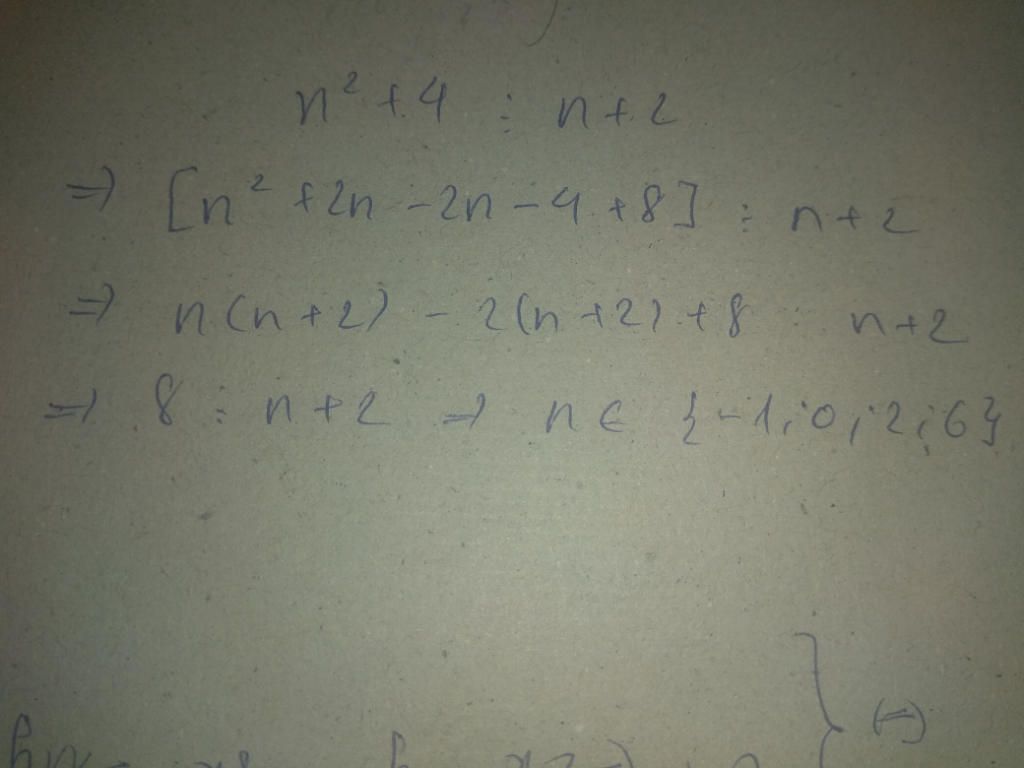 n² + 4 ⋮ n + 2
⇒ [n² + 2n - 2n - 4 + 8] ⋮ n + 2
⇒ n(n + 2) - 2(n + 2) + 8 ⋮ n + 2
⇒ 8 ⋮ n + 2 ⇒ n ∈ {-1; 0; 2; 6}
(-)